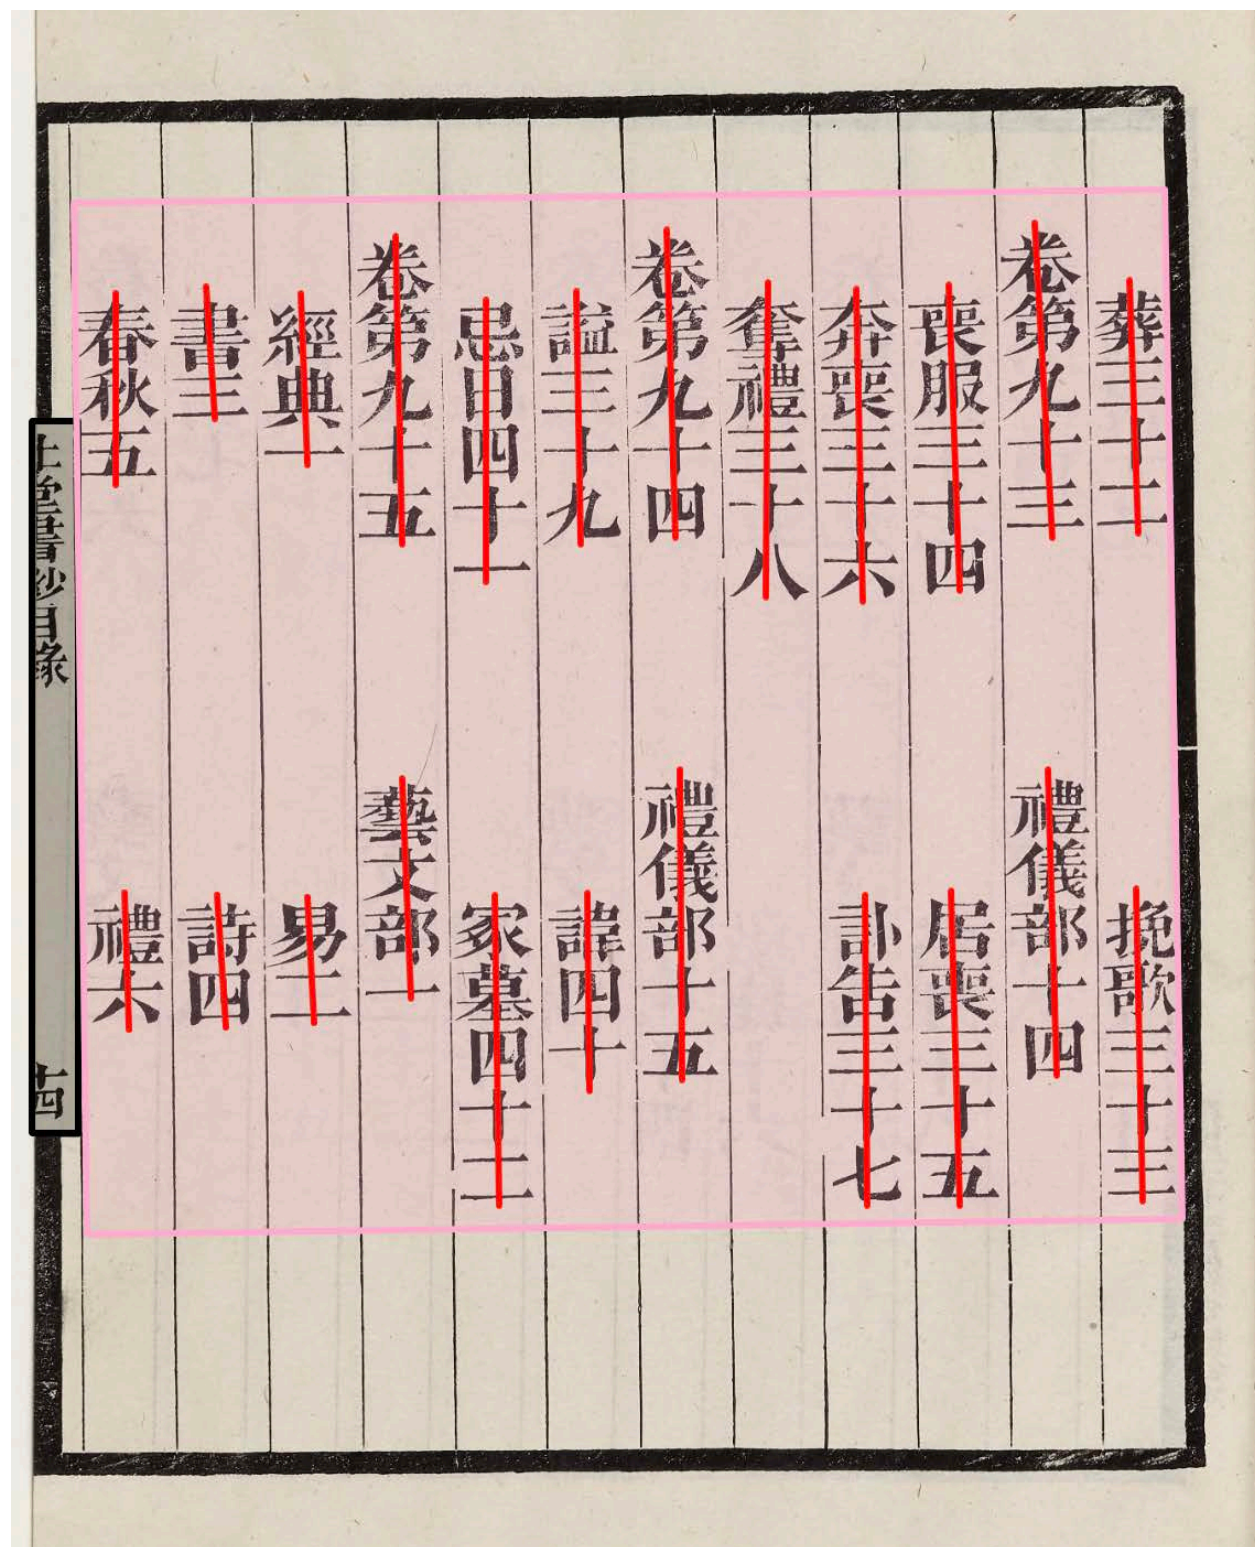 葬三十二
挽歌三十三
卷第九十三
禮儀部十四
喪服三十四
居喪三十五
奔喪三十六
訃告三十七
奪禮三十八
卷第九十四
禮儀部十五
謚三十九
諱四十
忌日四十一
冢墓四十二
卷第九十五
藝文部一
經典一
易二
書三
詩四
春秋五
禮六
堂書鈔目錄
十四